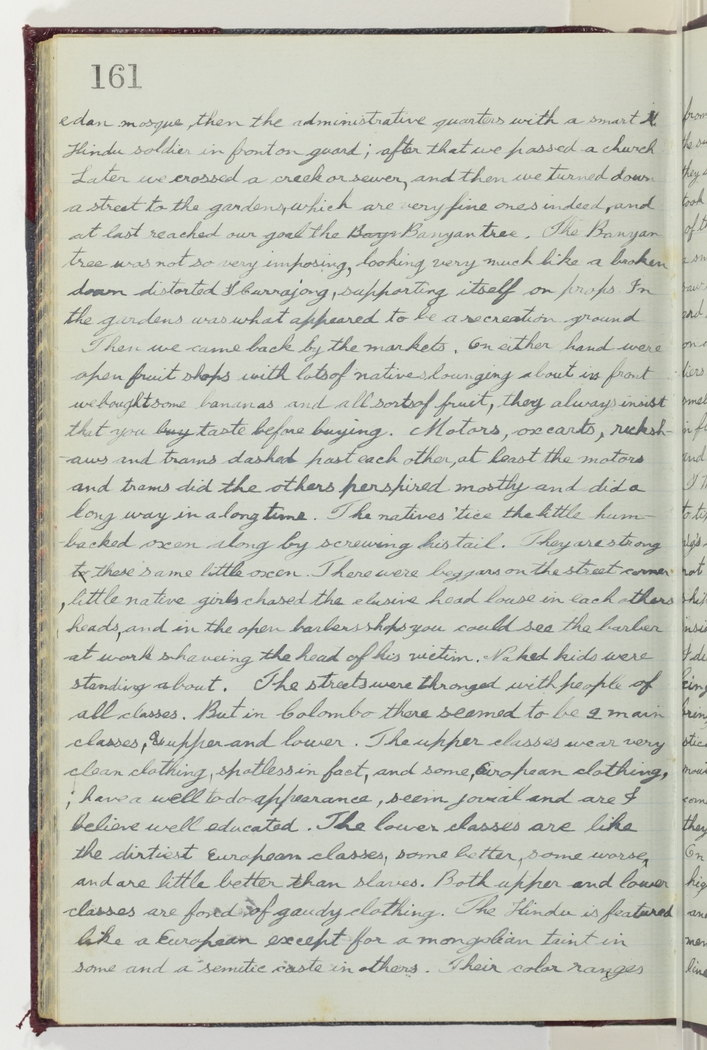 161
edan mosque, then the administrative quarters with a smart
Hindu soldier in front on guard; after that we passed a church
Later we crossed a creek or sewer, and then we turned down
a street to the gardens, which are very fine ones indeed, and
at last reached our goal the Banyan tree. The Banyan
tree was not so very imposing, looking very much like a broken
down distorted Currajong, supporting itself on props. In
the gardens was what appeared to be a recreation ground
Then we came back by the markets. On either hand were
open fruit shops with lots of natives lounging about in front
we bought some bananas and all sorts of fruit, they always insist
that you buy taste before buying. Motors, oxcarts, ricksh-
-aws and trams dashed past each other, at least the motors
and trams did the others perspired mostly and did a
long way in a long time. The natives 'tice the little hum-
-backed oxen along by screwing his tail. They are strong
these same little oxen. There were beggars on the street corner
, little native girls chased the elusive head louse in each others
heads, and in the open barbers shops you could see the barber
at work shaveing the head of his victim. Naked kids were
standing about. The streets were thronged with people of
all classes. But in Colombo there seemed to be 2 main
classes, upper and lower. The upper classes wear very
clean clothing, spotless in fact, and some, European clothing,
; have a well to do appearance, seem jovial and are I
believe well educated. The lower classes are like
the dirtiest European classes, some better, some worse,
and are little better than slaves. Both upper and lower
classes are fond of gaudy clothing. The Hindu is featured
like a European except for a mongolian taint in
some and a semitic caste in others. Their color ranges